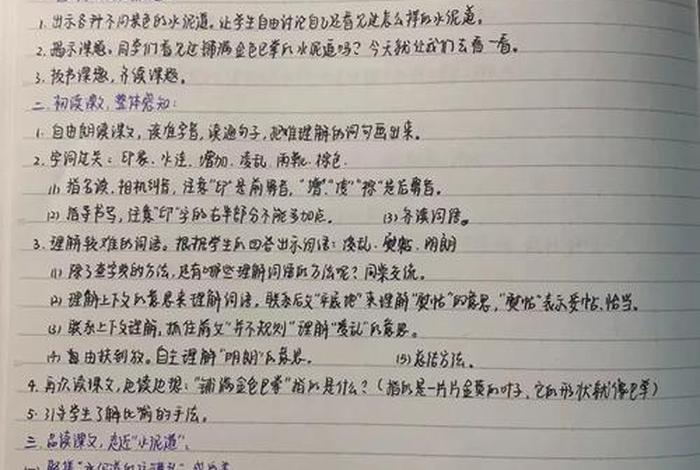 1. 出示各种不同景色的水泥道。让学生自由讨论自己还看见过怎么样的水泥道。
2. 揭示课题。同学们看见过铺满金色巴掌的水泥道吗?今天就让我们去看一看。
3. 板书课题,齐读课题。
二、初读课文,整体感知:
1. 自由朗读课文,读准字音,读通句子,把难理解的词句画出来。
2. 字词过关:印象、水洼、增加、凌乱、雨靴、棕色.
(1) 指名读,相机纠音,注意"印"是前鼻音,"增""凌""棕"是后鼻音。
(2) 指导书写,注意"印"字的右半部分不能多加点。 (3) 齐读词语。
3. 理解较难的词语。根据学生的回答出示词语:凌乱、熨帖、明朗
(1) 除了查字典的方法,还有哪些理解词语的方法呢?同桌交流。
(2) 理解上下文的意思来理解词语,联系后文"平展地"来理解"熨帖"的意思,"熨帖"表示妥帖、恰当。
(3) 联系上下文理解,抓住前文"并不规则"理解"凌乱"的意思。
(4) 自由找到放。自主理解"明朗"的意思。 (5) 总结方法。
4. 再次读课文,边读边想:"铺满金色巴掌"指的是什么?(指的是一片片金黄的叶子,它的形状就像巴掌)
5. 引导学生了解比喻的手法。
三、品读课文,走近"水泥道".